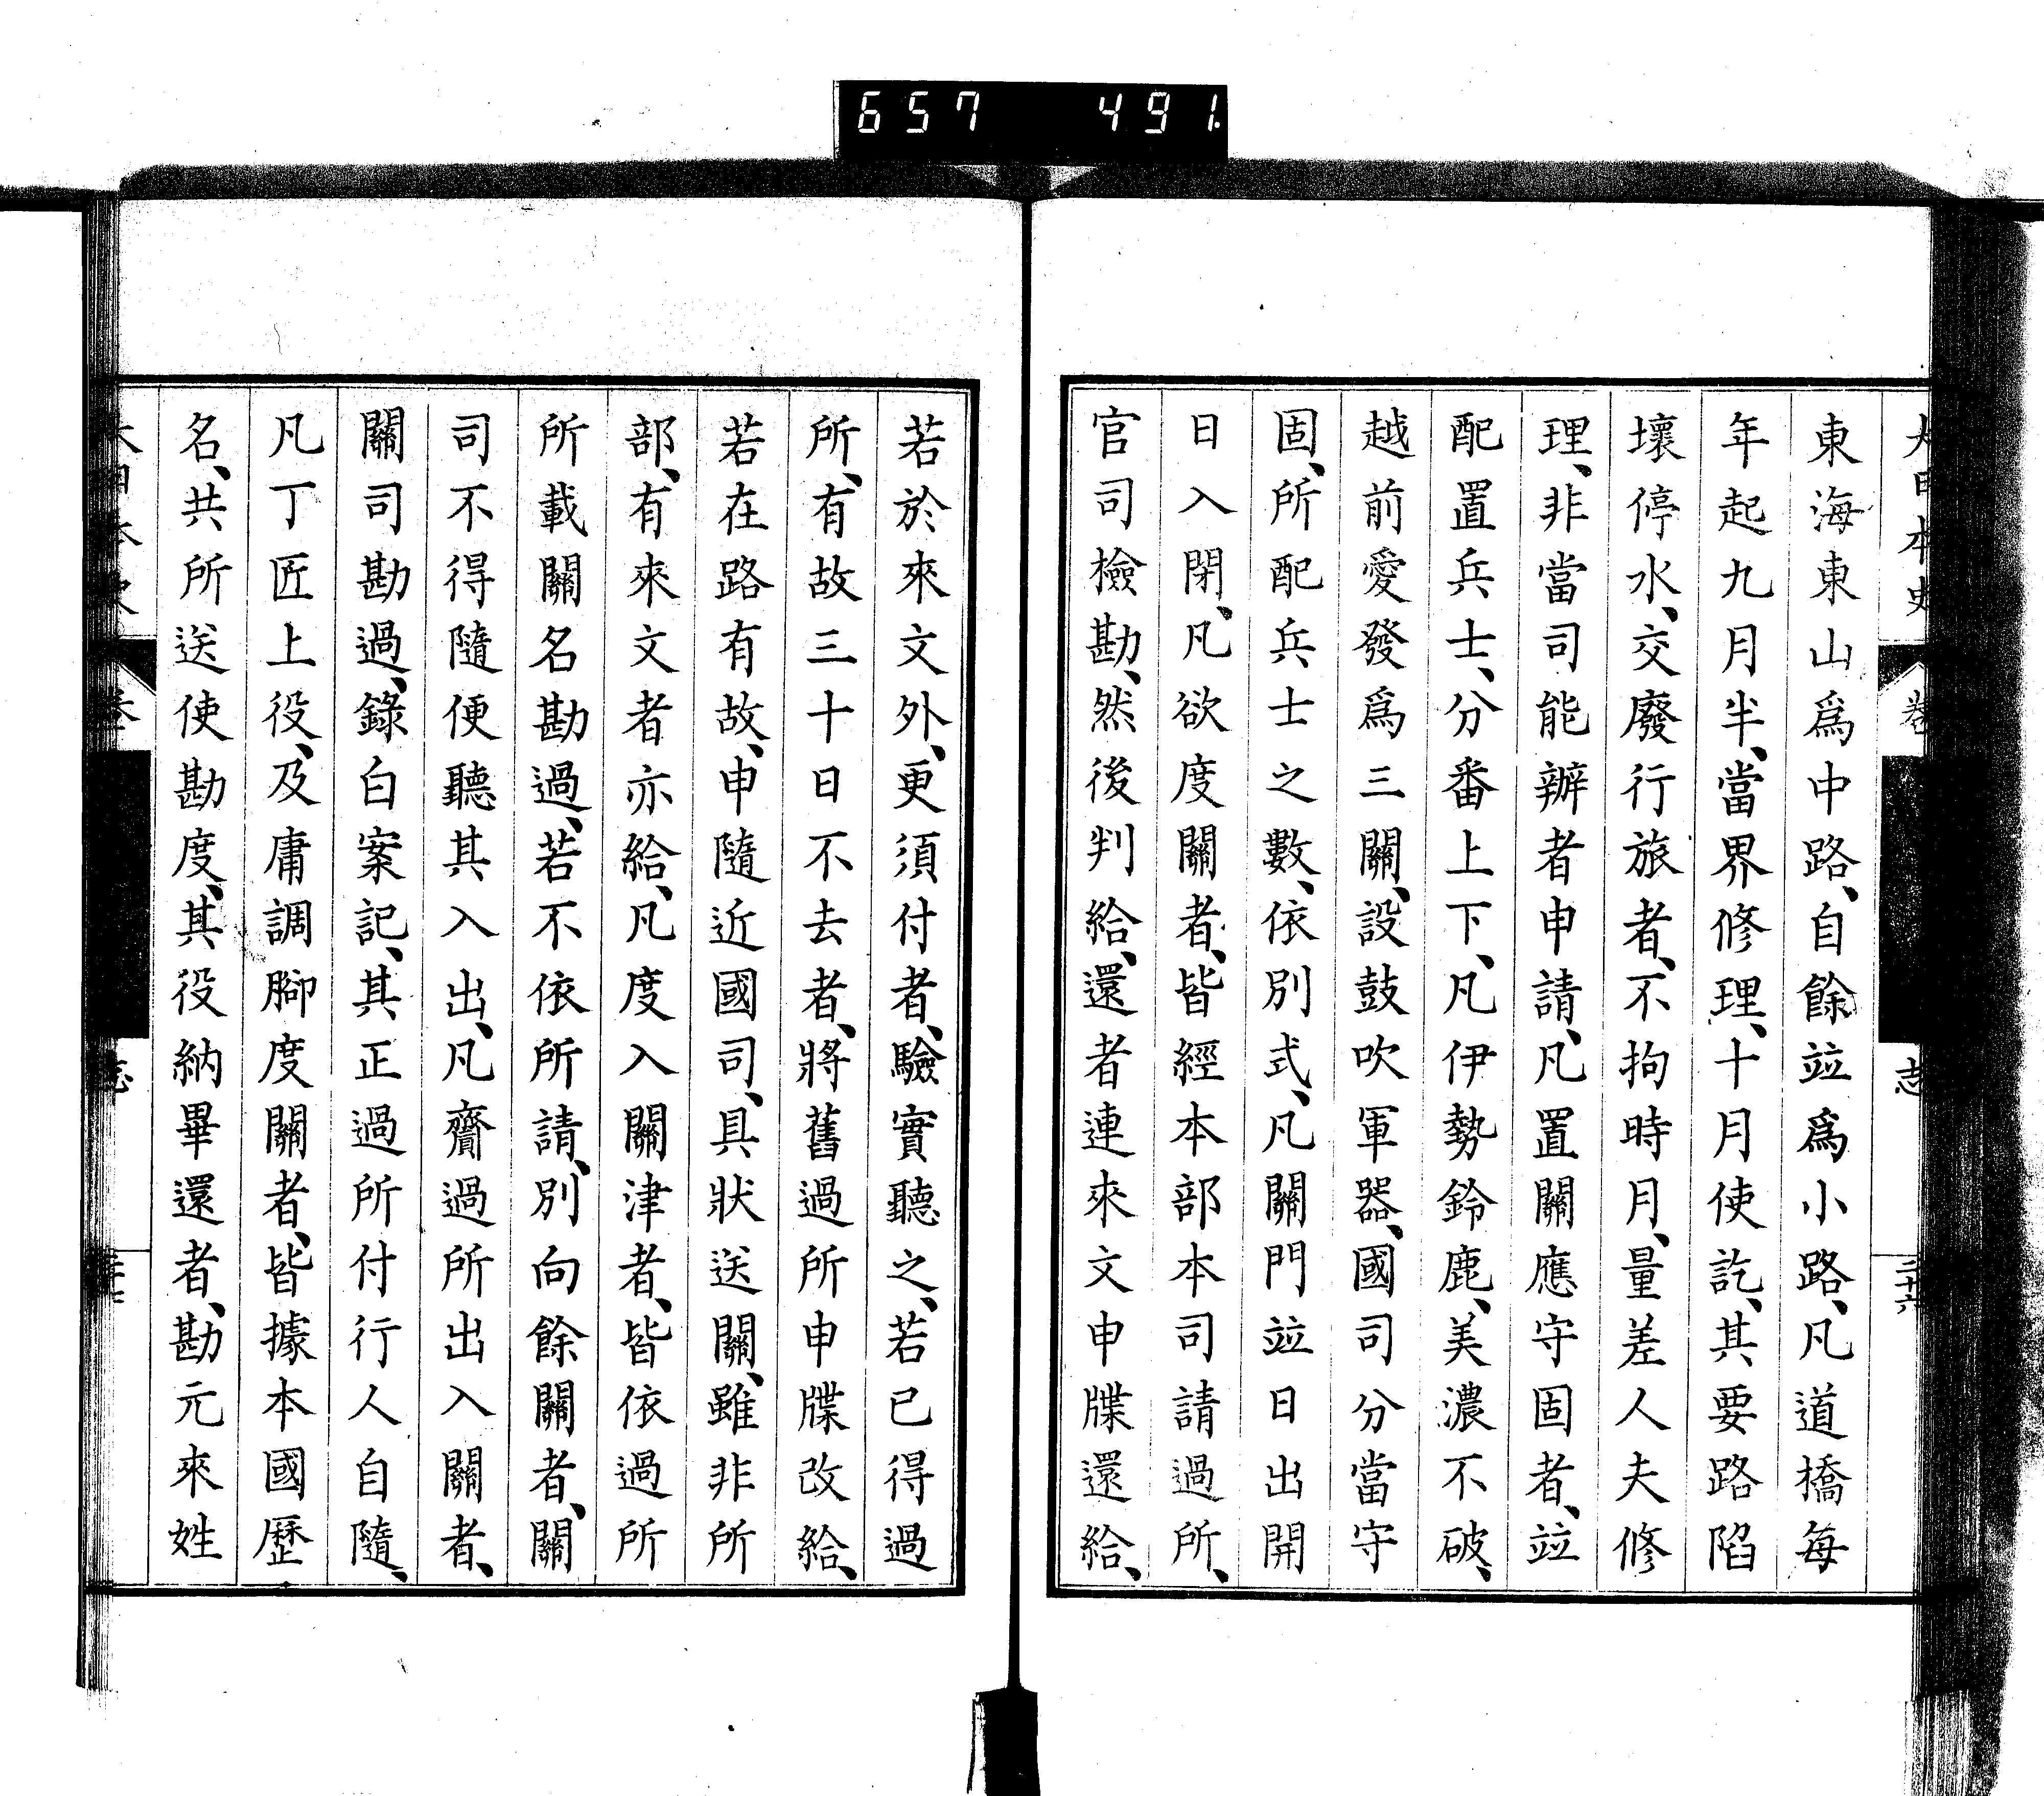 657 491
大日本史
卷
志
三十六
東海東山爲中路、自餘竝爲小路、凡道橋每
年起九月半、當界修理、十月使訖、其要路陷
壞停水、交廢行旅者、不拘時月、量差人夫修
理、非當司能辦者申請、凡置關應守固者、竝
配置兵士、分番上下、凡伊勢鈴鹿、美濃不破、
越前愛發爲三關、設鼓吹軍器、國司分當守
固、所配兵士之數、依別式、凡關門竝日出開
日入閉、凡欲度關者、皆經本部本司請過所、
官司檢勘、然後判給、還者連來文申牒還給、
若於來文外、更須付者、驗實聽之、若已得過
所、有故三十日不去者、將舊過所申牒改給、
若在路有故、申隨近國司、具狀送關、雖非所
部、有來文者亦給、凡度入關津者、皆依過所
所載關名勘過、若不依所請、別向餘關者、關
司不得隨便聽其入出、凡齎過所出入關者、
關司勘過、錄白案記、其正過所付行人自隨、
凡丁匠上役、及庸調腳度關者、皆據本國歷
名、共所送使勘度、其役納畢還者、勘元來姓
大日本史
卷
志